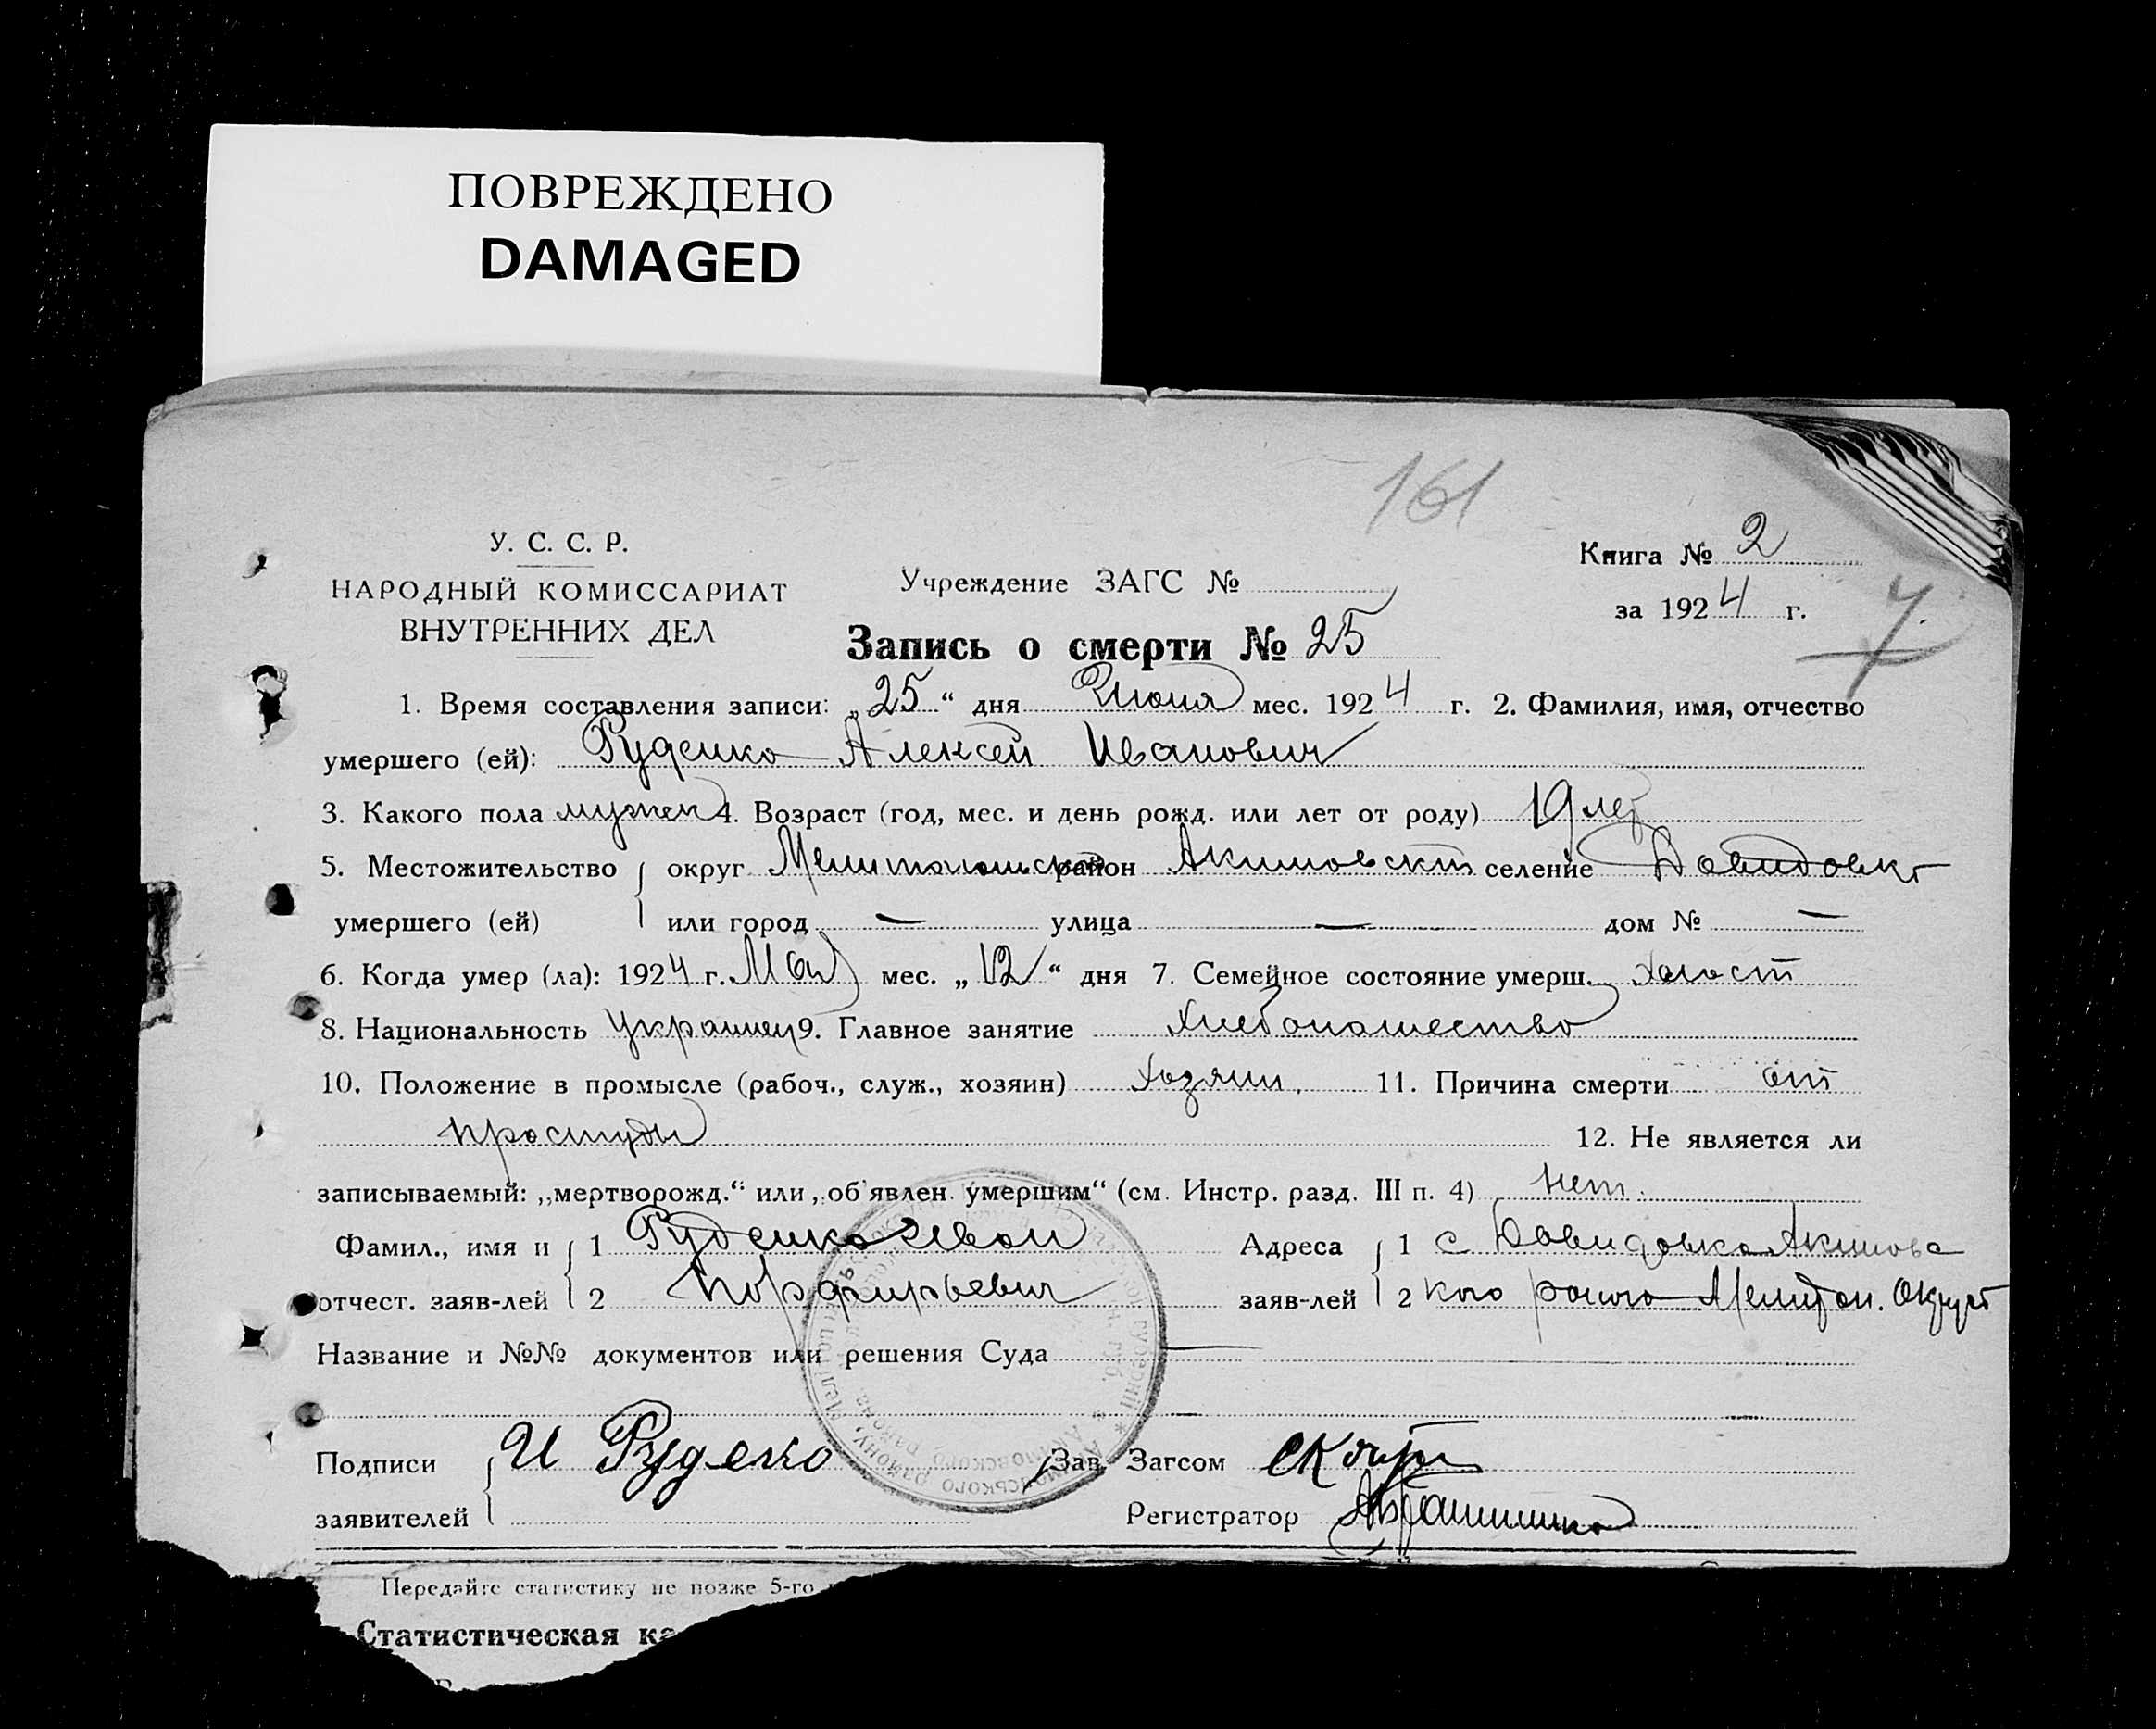 ПОВРЕЖДЕНО
DAMAGED
161
У. С. С. Р.
НАРОДНЫЙ КОМИССАРИАТ
ВНУТРЕННИХ ДЕЛ
Учреждение ЗАГС №
Книга № 2
за 1924 г.
7.
Запись о смерти № 25
1. Время составления записи: „25“ дня Июня мес. 1924 г. 2. Фамилия, имя, отчество
умершего (ей): Руденко Алексей Иванович
3. Какого пола мужск 4. Возраст (год, мес. и день рожд. или лет от роду) 19 лет
5. Местожительство округ Мелитопольский район Акимовский селение Давидовка
умершего (ей) или город — улица — дом № —
6. Когда умер (ла): 1924 г. Мая мес. „12“ дня 7. Семейное состояние умерш. холост
8. Национальность Украинец 9. Главное занятие хлебопашество
10. Положение в промысле (рабоч., служ., хозяин) хозяин. 11. Причина смерти от
простуды 12. Не является ли
записываемый: „мертворожд.“ или „об'явлен умершим“ (см. Инстр. разд. III п. 4) нет.
Фамил., имя и 1 Руденко Иван Адреса 1 с Давидовка Акимовс
отчест. заяв-лей 2 Порфирьевич заяв-лей 2 кого района Мелитоп. Округа
Название и №№ документов или решения Суда —
Подписи И Руденко Зав. Загсом
заявителей Регистратор
Передайте статистику не позже 5-го
Статистическая ка